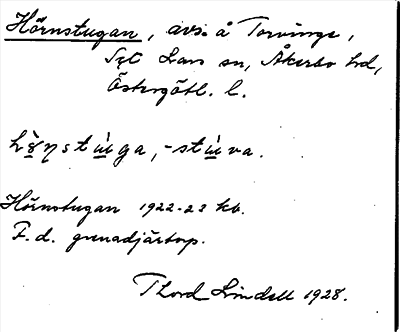 Hörnstugan, avs. å Torvinge,
S:t Lars sn, Åkerbo hd,
Östergötl. l.
Hörnstugan 1922-23 kb.
F.d. grenadjärtorp.
Thord Lindell 1928.